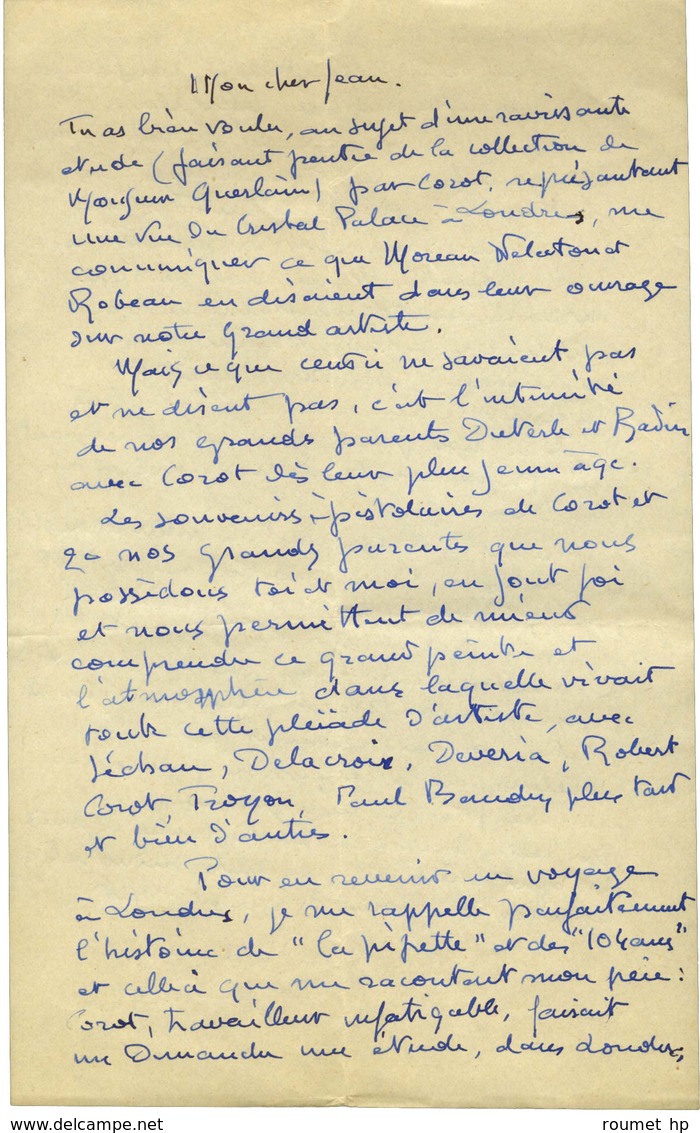 Mon cher Jean.
Tu as bien voulu, au sujet d'une ravissante
etude (faisant partie de la collection de
Monsieur Guerlain) par Corot, représentant
une vue du Cristal Palace à Londres, me
communiquer ce que Moreau Nelaton et
Robeau en disaient dans leur ouvrage
sur notre grand artiste.
Mais ce que ceux ci ne savaient pas
et ne disent pas, c'est l'intimité
de nos grands parents Dieterle et
avec Corot dès leur plus jeune âge.
Les souvenirs épistolaires de Corot et
de nos grands parents que nous
possédons toi et moi, en font foi
et nous permettent de mieux
comprendre ce grand peintre et
l'atmosphère dans laquelle vivait
toute cette pleïade d'artiste, avec
Séchan, Delacroix, Deveria, Robert
Corot Troyon, Paul Baudry plus tard
et bien d'autres.
Pour en revenir au voyage
à Londres, je me rappelle parfaitement
l'histoire de "la pipette" et des "104 ans"
et celle-ci que me racontent mon père :
Corot, travailleur infatigable, faisait
un Dimanche une étude, dans Londres,
roumet hp
www.delcampe.net